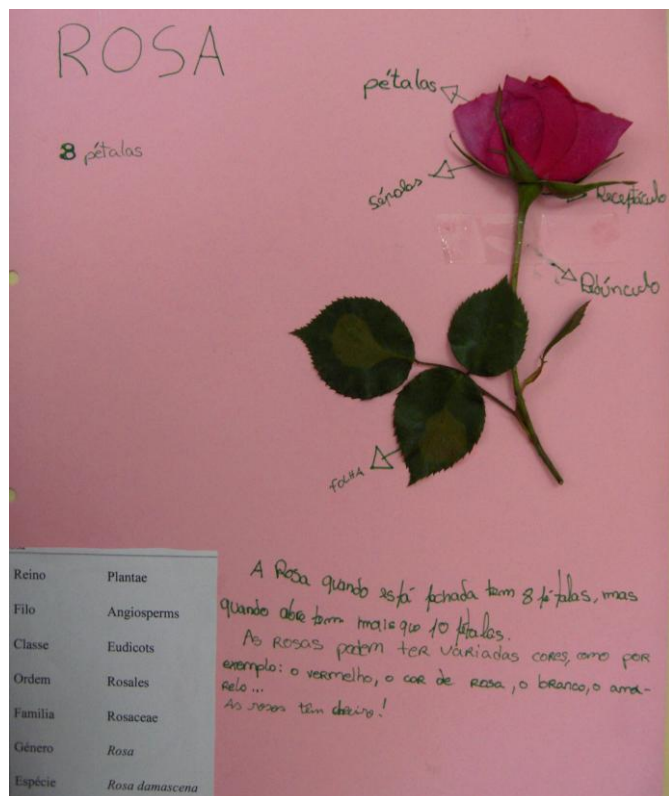 ROSA
8 pétalas
pétalas
sépalas
Receptáculo
Pedúnculo
FOLHA
Reino Plantae
Filo Angiosperms
Classe Eudicots
Ordem Rosales
Família Rosaceae
Género Rosa
Espécie Rosa damascena
A Rosa quando está fechada tem 8 pétalas, mas
quando abre tem mais que 10 pétalas.
As ROSAS podem TER VARIADAS CORES, como por
exemplo: o vermelho, o cor de ROSA, o branco, o ama-
Relo...
As rosas têm cheiro!